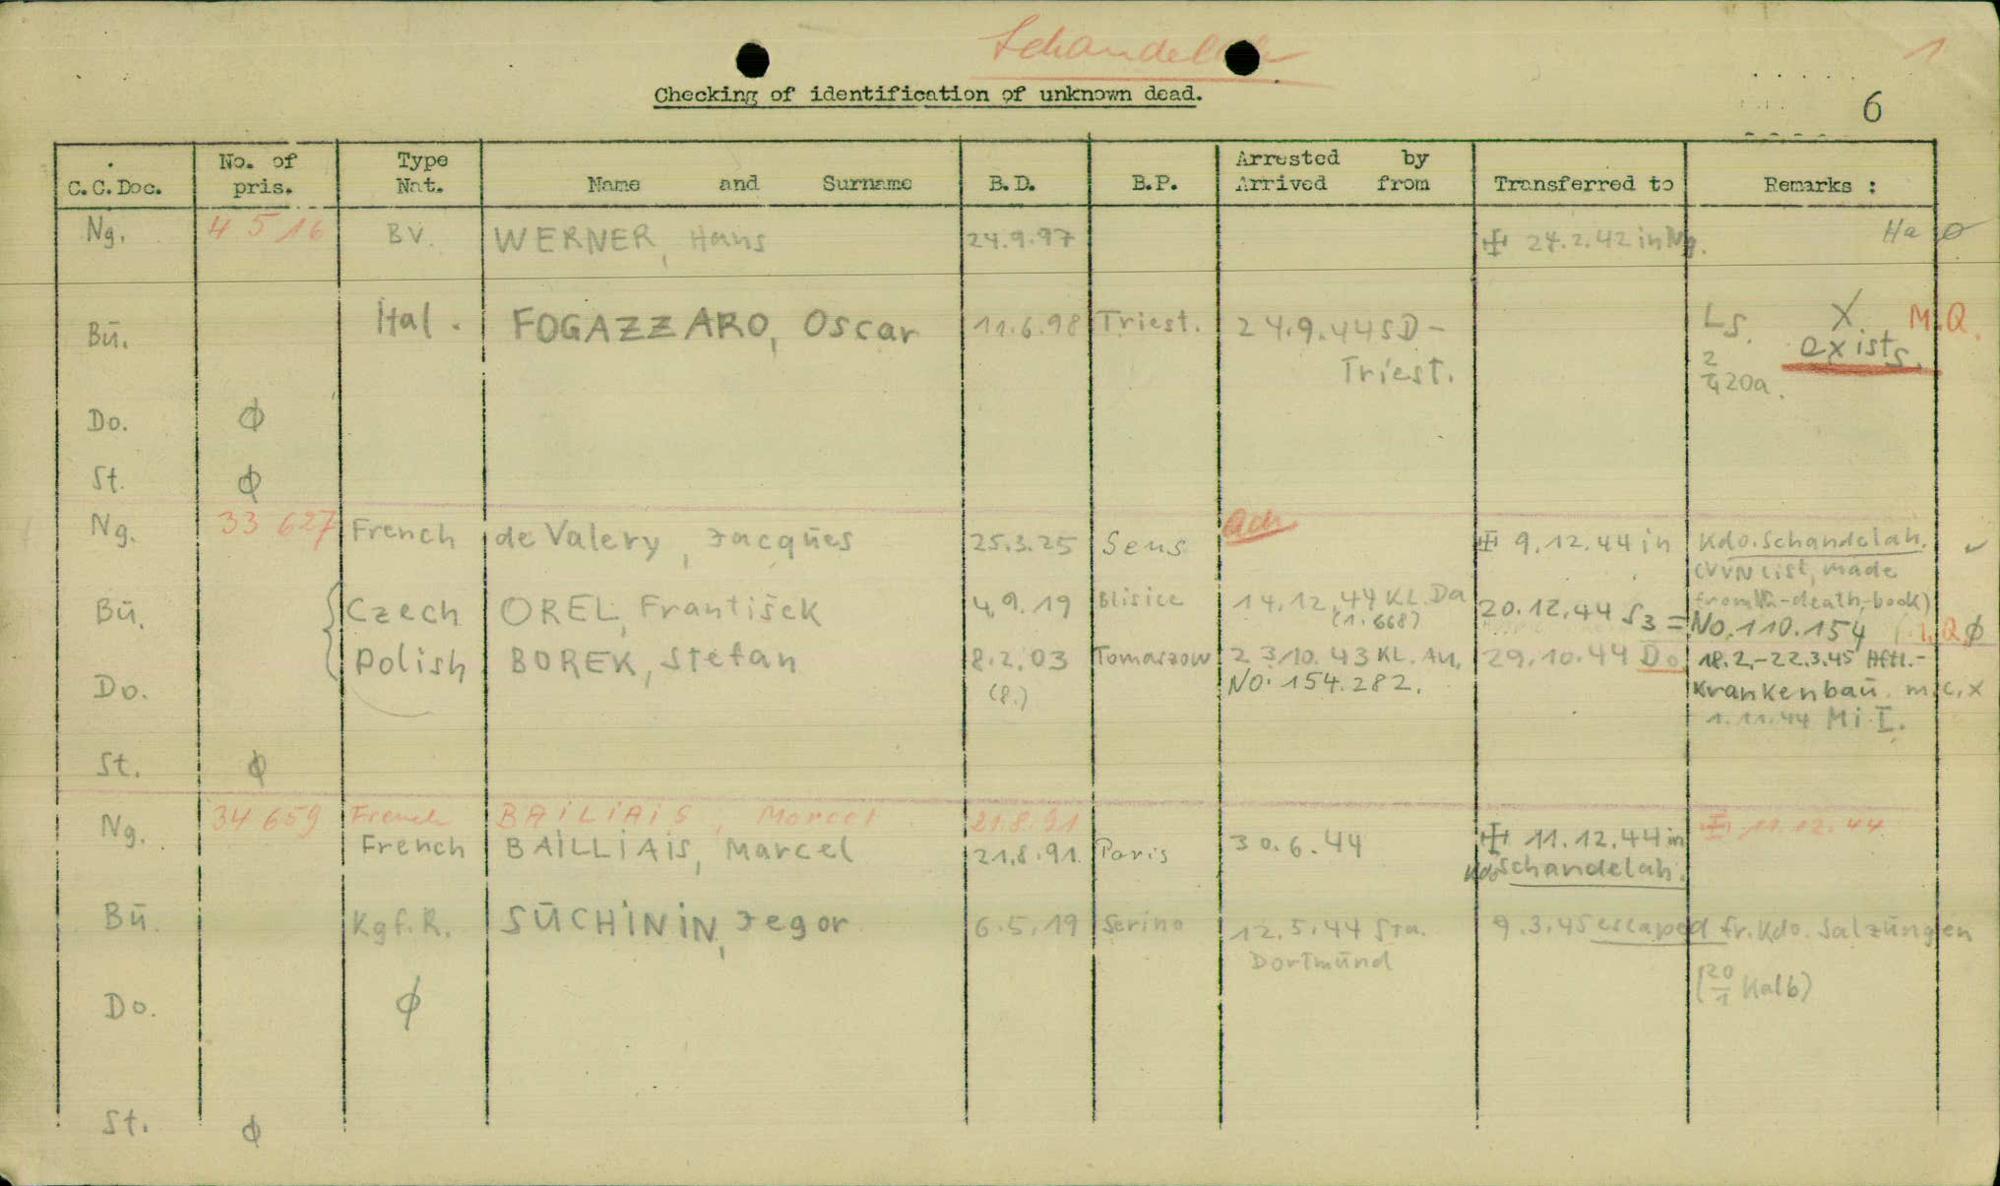 Schandelah
1
Checking of identification of unknown dead.
6
C.C.Doc. No. of pris. Type Nat. Name and Surname B.D. B.P. Arrested by Arrived from Transferred to Remarks :
Ng. 4516 BV. WERNER, Hans 24.9.97 24.2.42 in Ng. Ha ø
Bū. Ital. FOGAZZARO, Oscar 11.6.98 Triest. 24.9.44 SD- Ls. X M.Q.
Triest. 2 exists.
4 20a.
Do. ϕ
St. ϕ
Ng. 33 627 French de Valery, Jacqūes 25.3.25 Sens 9.12.44 in Kdo. Schandelah. ✓
(VVN list, made
Bū. Czech OREL, František 4.9.19 Blisice 14.12.44 KL. Da 20.12.44 S3 = from -death-book)
(1.668) No. 110.154 Q ϕ
Polish BOREK, Stefan 8.2.03 Tomaszow 23.10.43 KL. Au. 29.10.44 Do 18.2.-22.3.45 Hftl.-
Do. (8.) No. 154.282. Krankenbaū. m.c. x
1.11.44 Mi. I.
St. ϕ
Ng. 34 659 French BAILIAIS, Marcel 21.8.91 11.12.44
French BAILLIAIS, Marcel 21.8.91 Paris 30.6.44 11.12.44 in
Kdo Schandelah.
Bū. Kgf. R. SŪCHININ, Jegor 6.5.19 Serino 12.5.44 Sta. 9.3.45 escaped fr. Kdo. Salzūngen
Dortmūnd
Do. ϕ (20/1 Kalb)
St. ϕ